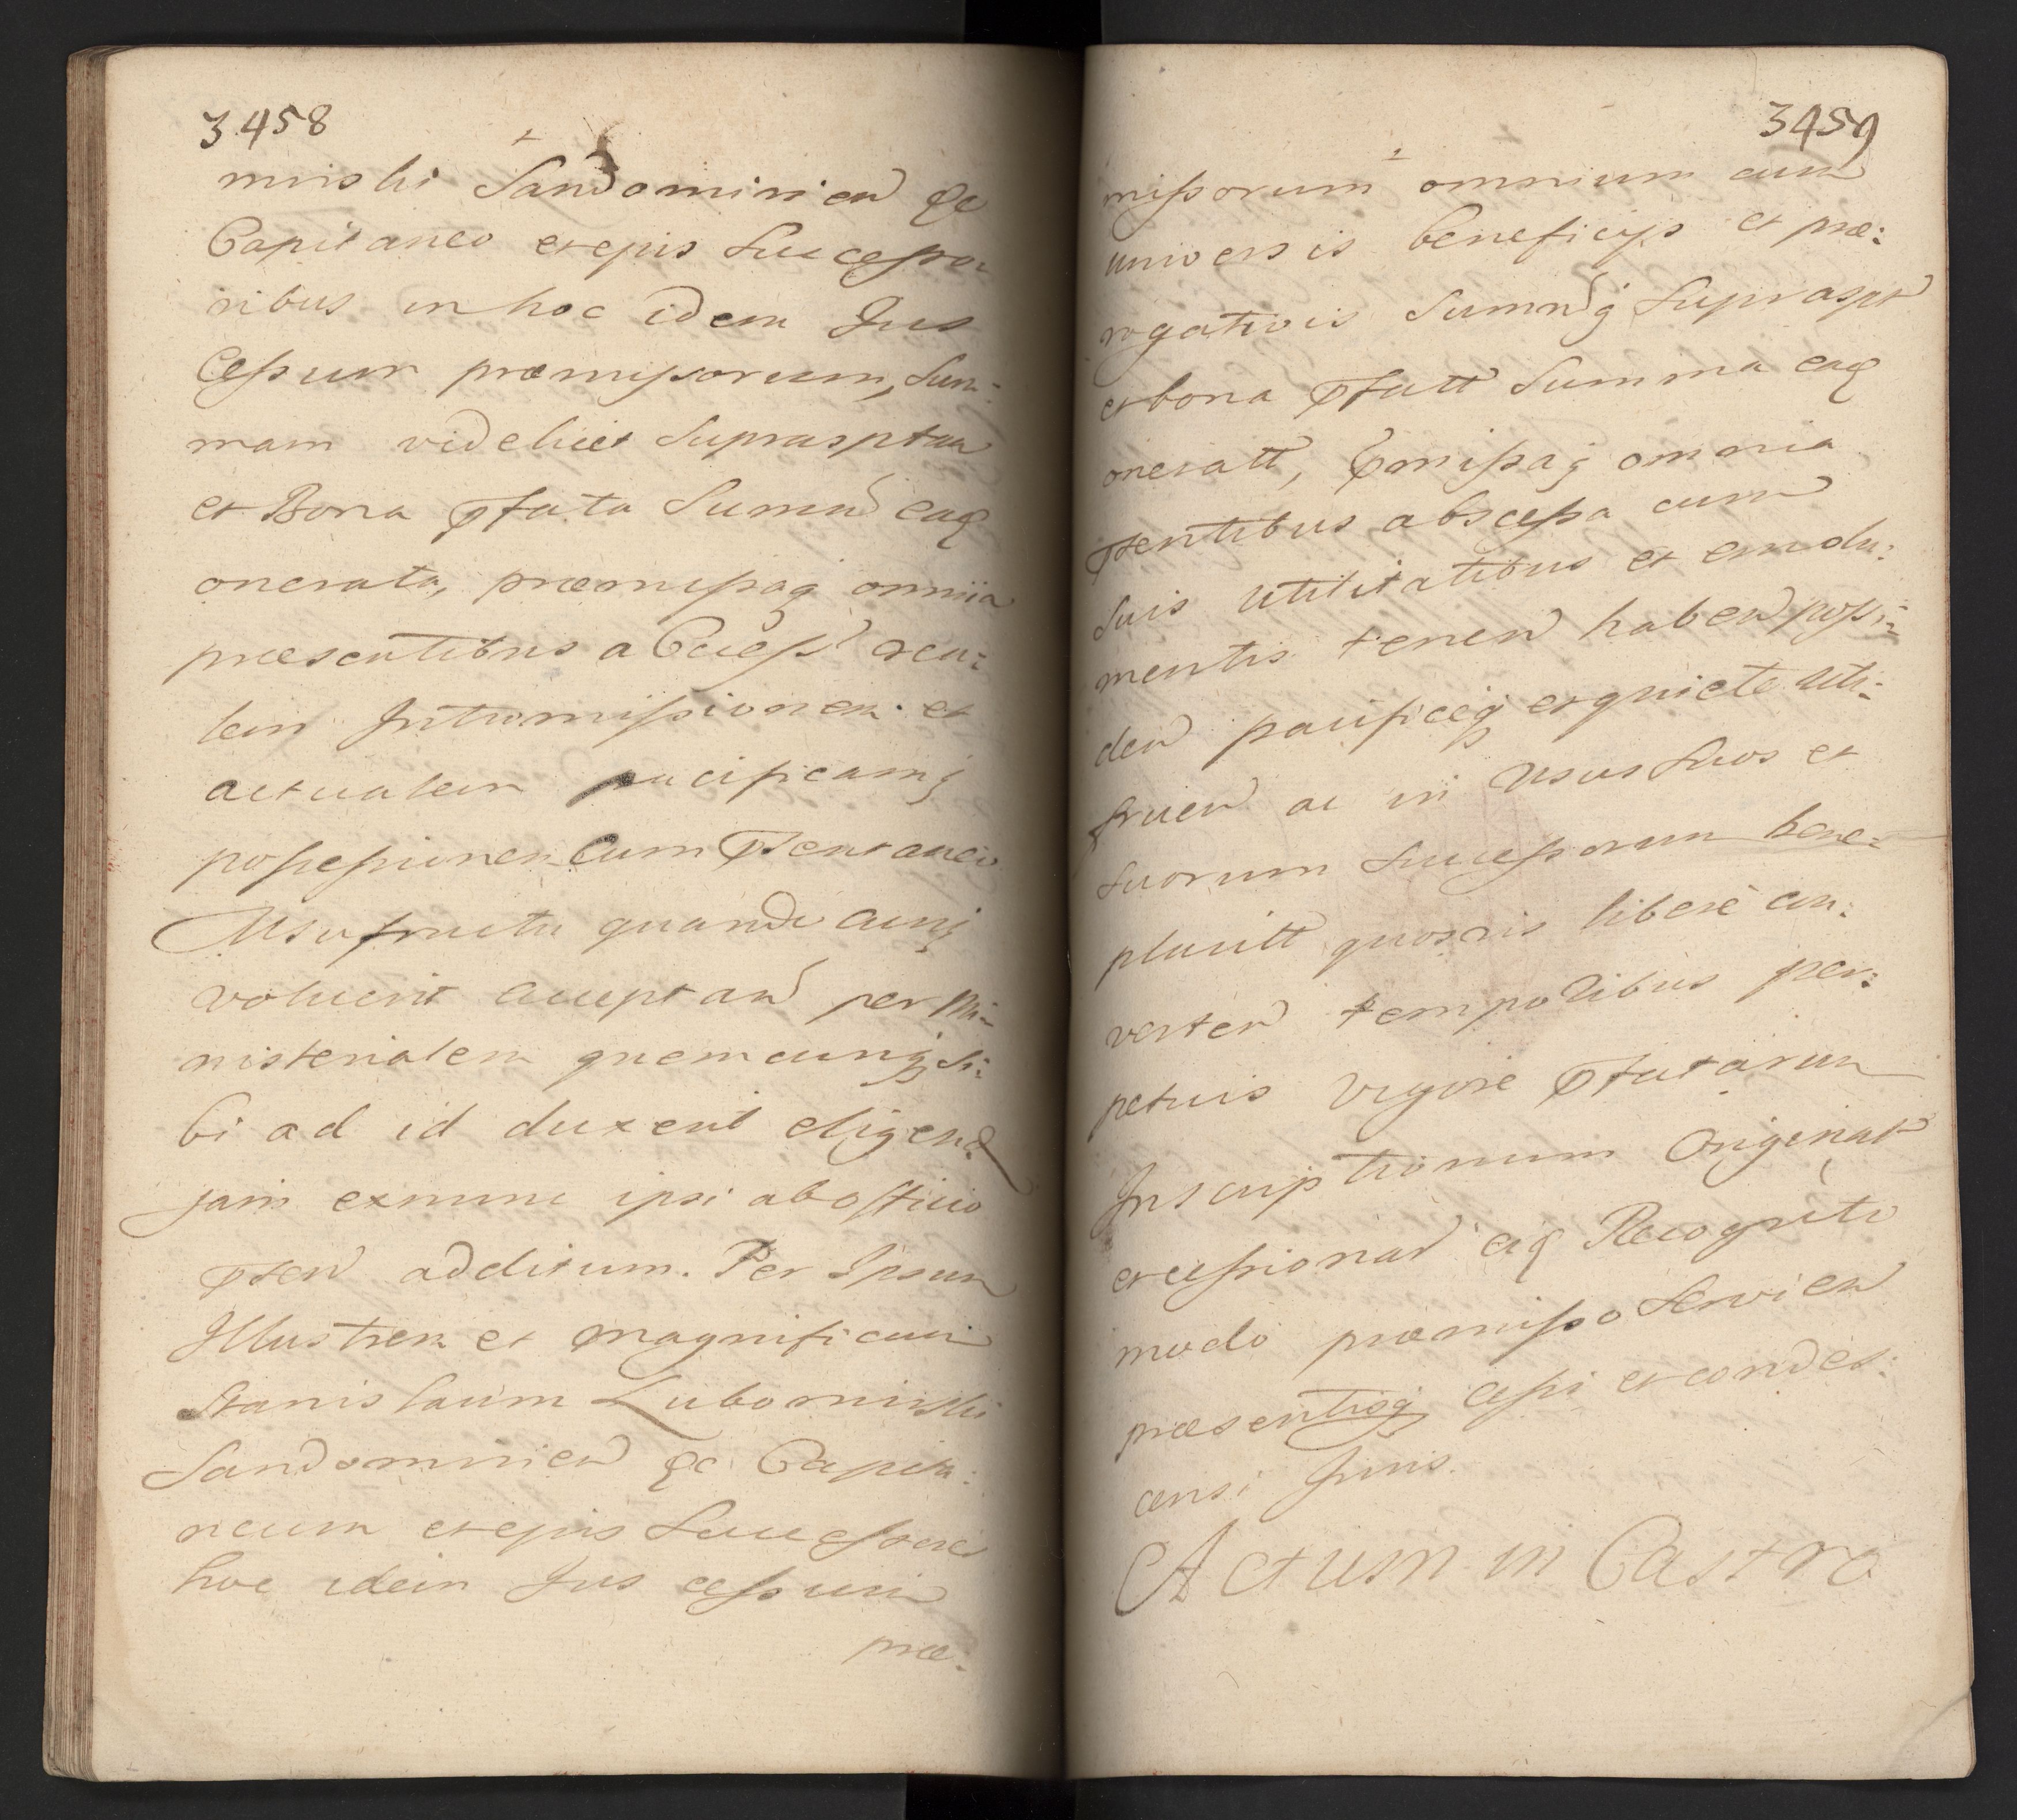 3458
mirski Sandomirien &c
Capitaneo et ejus Successo:
ribus in hoc idem Jus
Cessum præmissorum, Sum:
mam videlicet Suprasptam
et Bona pfata Summ eaq
onerata, præmissaq omnia
præsentibus a Ccess rea:
lem Intromissionem et
actualem pacificamq
possessionem Cum psentaneo
Usufructu quandocunq
voluerit acceptan per Mi:
nisterialem quemcunq Si:
bi ad id duxerit eligend
jam exnunc ipsi ab officio
psen additum. Per Ipsum
Illustrem et Magnificum
Stanislaum Lubomirski
Sandomirien &c Capita:
neum et ejus Successores
hoc idem Jus cessum
præ:
3459
missorum omnium cum
universis beneficijs et præ:
rogativis Summq Supraspt
et bona pfatt Summa eaq
oneratt, pmissaq omnia
psentibus abscessa cum
Suis utilitatibus et emolu:
mentis tenen haben possi:
den pacificeq et quiete uti:
fruen ac in Usus Suos et
Suorum Successorum bene:
placitt quosvis libere con:
verten temporibus per:
petuis vigore pfatarum
Inscriptionum Originat
et cessionat eiq Recognito
modo præmisso Servien
præsentisq cessi et condes:
censi Juris.
Actum in Castro